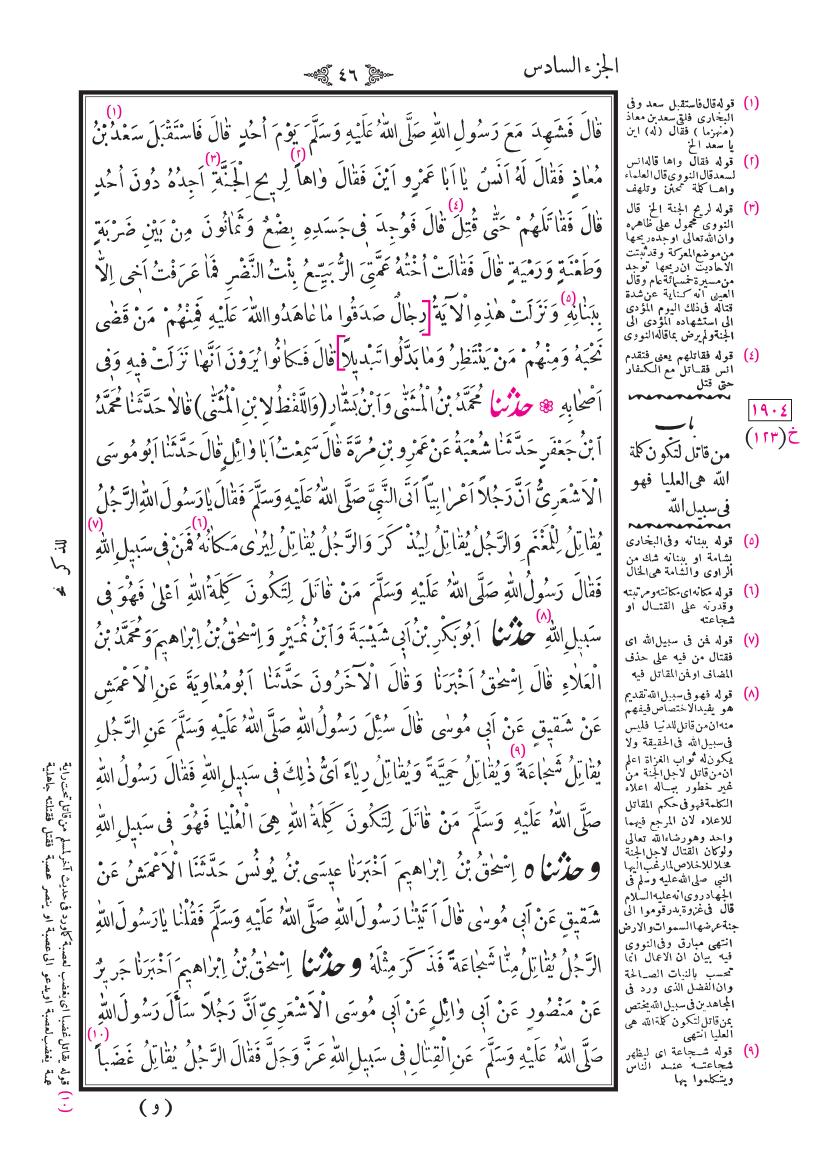 الجزء السادس
٤٦
قَالَ فَشَهِدَ مَعَ رَسُولِ اللّٰهِ صَلَّى اللّٰهُ عَلَيْهِ وَسَلَّمَ يَوْمَ اُحُدٍ قَالَ فَاسْتَقْبَلَ سَعْدُ بْنُ (١)
مُعَاذٍ فَقَالَ لَهُ اَنَسٌ يَا اَبَا عَمْرٍو اَيْنَ فَقَالَ وَاهاً (٢) لِرِيحِ الْجَنَّةِ (٣) اَجِدُهُ دُونَ اُحُدٍ
قَالَ فَقَاتَلَهُمْ حَتّٰى قُتِلَ (٤) قَالَ فَوُجِدَ فِى جَسَدِهِ بِضْعٌ وَثَمَانُونَ مِنْ بَيْنِ ضَرْبَةٍ
وَطَعْنَةٍ وَرَمْيَةٍ قَالَ فَقَالَتْ اُخْتُهُ عَمَّتِىَ الرُّبَيِّعُ بِنْتُ النَّضْرِ فَمَا عَرَفْتُ اَخِى اِلاّٰ
بِبَنَانِهِ (٥) وَنَزَلَتْ هٰذِهِ الْآيَةُ [رِجَالٌ صَدَقُوا مَا عَاهَدُوا اللّٰهَ عَلَيْهِ فَمِنْهُمْ مَنْ قَضٰى
نَحْبَهُ وَمِنْهُمْ مَنْ يَنْتَظِرُ وَمَا بَدَّلُوا تَبْدِيلاً] قَالَ فَكَانُوا يُرَوْنَ اَنَّهَا نَزَلَتْ فِيهِ وَفِى
اَصْحَابِهِ ❁ حَدَّثَنَا مُحَمَّدُ بْنُ الْمُثَنّٰى وَابْنُ بَشَّارٍ (وَاللَّفْظُ لِابْنِ الْمُثَنّٰى) قَالَا حَدَّثَنَا مُحَمَّدُ
ابْنُ جَعْفَرٍ حَدَّثَنَا شُعْبَةُ عَنْ عَمْرِو بْنِ مُرَّةَ قَالَ سَمِعْتُ اَبَا وَائِلٍ قَالَ حَدَّثَنَا اَبُو مُوسَى
الْاَشْعَرِىُّ اَنَّ رَجُلاً اَعْرَابِيّاً اَتَى النَّبِىَّ صَلَّى اللّٰهُ عَلَيْهِ وَسَلَّمَ فَقَالَ يَا رَسُولَ اللّٰهِ الرَّجُلُ
يُقَاتِلُ لِلْمَغْنَمِ وَالرَّجُلُ يُقَاتِلُ لِيُذْكَرَ وَالرَّجُلُ يُقَاتِلُ لِيُرٰى مَكَانُهُ (٦) فَمَنْ فِى سَبِيلِ اللّٰهِ (٧)
فَقَالَ رَسُولُ اللّٰهِ صَلَّى اللّٰهُ عَلَيْهِ وَسَلَّمَ مَنْ قَاتَلَ لِتَكُونَ كَلِمَةُ اللّٰهِ اَعْلٰى فَهُوَ فِى
سَبِيلِ اللّٰهِ (٨) حَدَّثَنَا اَبُو بَكْرِ بْنُ اَبِى شَيْبَةَ وَابْنُ نُمَيْرٍ وَاِسْحٰقُ بْنُ اِبْرَاهِيمَ وَمُحَمَّدُ بْنُ
الْعَلَاءِ قَالَ اِسْحٰقُ اَخْبَرَنَا وَقَالَ الْآخَرُونَ حَدَّثَنَا اَبُو مُعَاوِيَةَ عَنِ الْاَعْمَشِ
عَنْ شَقِيقٍ عَنْ اَبِى مُوسٰى قَالَ سُئِلَ رَسُولُ اللّٰهِ صَلَّى اللّٰهُ عَلَيْهِ وَسَلَّمَ عَنِ الرَّجُلِ
يُقَاتِلُ شَجَاعَةً (٩) وَيُقَاتِلُ حَمِيَّةً وَيُقَاتِلُ رِيَاءً اَىُّ ذٰلِكَ فِى سَبِيلِ اللّٰهِ فَقَالَ رَسُولُ اللّٰهِ
صَلَّى اللّٰهُ عَلَيْهِ وَسَلَّمَ مَنْ قَاتَلَ لِتَكُونَ كَلِمَةُ اللّٰهِ هِىَ الْعُلْيَا فَهُوَ فِى سَبِيلِ اللّٰهِ
وَحَدَّثَنَاه اِسْحٰقُ بْنُ اِبْرَاهِيمَ اَخْبَرَنَا عِيسَى بْنُ يُونُسَ حَدَّثَنَا الْاَعْمَشُ عَنْ
شَقِيقٍ عَنْ اَبِى مُوسٰى قَالَ اَتَيْنَا رَسُولَ اللّٰهِ صَلَّى اللّٰهُ عَلَيْهِ وَسَلَّمَ فَقُلْنَا يَا رَسُولَ اللّٰهِ
الرَّجُلُ يُقَاتِلُ مِنَّا شَجَاعَةً فَذَكَرَ مِثْلَهُ وَحَدَّثَنَا اِسْحٰقُ بْنُ اِبْرَاهِيمَ اَخْبَرَنَا جَرِيرٌ
عَنْ مَنْصُورٍ عَنْ اَبِى وَائِلٍ عَنْ اَبِى مُوسَى الْاَشْعَرِىِّ اَنَّ رَجُلاً سَأَلَ رَسُولَ اللّٰهِ
صَلَّى اللّٰهُ عَلَيْهِ وَسَلَّمَ عَنِ الْقِتَالِ فِى سَبِيلِ اللّٰهِ عَزَّ وَجَلَّ فَقَالَ الرَّجُلُ يُقَاتِلُ غَضَباً (١٠)
( و )
(١) قوله قال فاستقبل سعد وفى
البخارى فلقى سعد بن معاذ
(منهزما) فقال (له) اين
يا سعد الخ
(٢) قوله فقال واها قاله انس
لسعد قال النووى قال العلماء
واها كلمة تحنن وتلهف
(٣) قوله لريح الجنة الخ قال
النووى محمول على ظاهره
وان الله تعالى اوجده ريحها
من موضع المعركة وقد ثبتت
الاحاديث ان ريحها توجد
من مسيرة خمسمائة عام وقال
العينى انه كناية عن شدة
قتاله فى ذلك اليوم المؤدى
الى استشهاده المؤدى الى
الجنة ولم يرض بما قاله النووى
(٤) قوله فقاتلهم يعنى فتقدم
انس فقاتل مع الكفار
حتى قتل
١٩٠٤
خ (١٢٣)
باب
من قاتل لتكون كلمة
الله هى العليا فهو
فى سبيل الله
(٥) قوله ببنانه وفى البخارى
بشامة او ببنانه شك من
الراوى والشامة هى الخال
(٦) قوله مكانه اى مكانته ومرتبته
وقدرته على القتال او
شجاعته
(٧) قوله فمن فى سبيل الله اى
فقتال من فيه على حذف
المضاف او فمن المقاتل فيه
(٨) قوله فهو فى سبيل الله تقديم
هو يفيد الاختصاص فيفهم
منه ان من قاتل للدنيا فليس
فى سبيل الله فى الحقيقة ولا
يكون له ثواب الغزاة اعلم
ان من قاتل لاجل الجنة من
غير خطور بباله اعلاء
الكلمة فهو فى حكم المقاتل
للاعلاء لان المرجع فيهما
واحد وهو رضاء الله تعالى
ولو كان القتال لاجل الجنة
مخلا للاخلاص لما رغب اليها
النبى صلى الله عليه وسلم فى
الجهاد روى انه عليه السلام
قال فى غزوة بدر قوموا الى
جنة عرضها السموات والارض
انتهى مبارق وفى النووى
فيه بيان ان الاعمال انما
تحسب بالنيات الصالحة
وان الفضل الذى ورد فى
المجاهدين فى سبيل الله يختص
بمن قاتل لتكون كلمة الله هى
العليا انتهى
(٩) قوله شجاعة اى ليظهر
شجاعته عند الناس
ويتكلموا بها
(١٠) قوله يقاتل غضبا اى يغضب لعصبة كما ورد فى حديث آخر لمسلم من قاتل تحت راية
عمية يغضب لعصبة او يدعو الى عصبة او ينصر عصبة فقتل فقتلته جاهلية